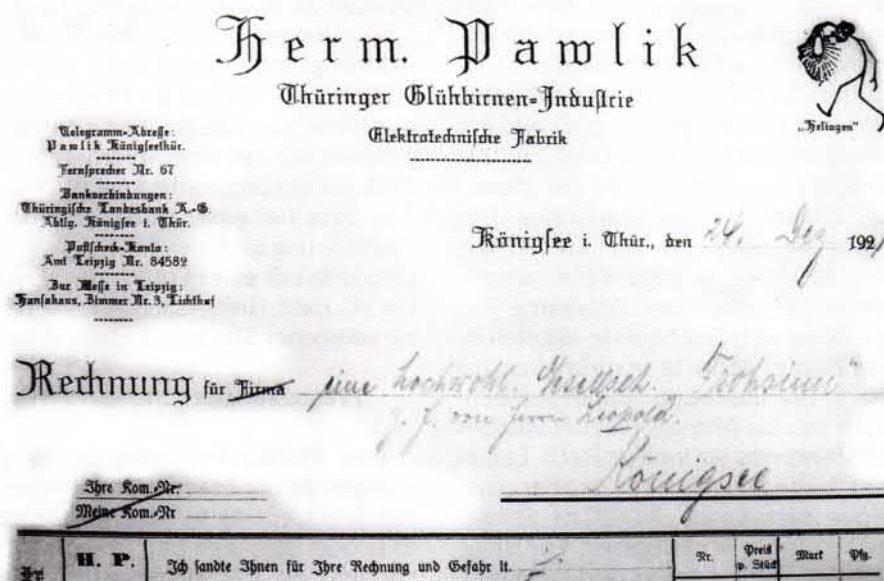 Herm. Pawlik
Thüringer Glühbirnen-Industrie
Elektrotechnische Fabrik
„Helingen"
Telegramm-Adresse:
Pawlik Königseethür.
Fernsprecher Nr. 67
Bankverbindungen:
Thüringische Landesbank A.-G.
Abtlg. Königsee i. Thür.
Postscheck-Konto:
Amt Leipzig Nr. 84582
Zur Messe in Leipzig:
Hansahaus, Zimmer Nr. 3, Lichthof
Königsee i. Thür., den 24. Dez 192
Rechnung für Firma eine hochwohl. Gesellsch. „Frohsinn"
z. H. von Herrn Leopold.
Königsee
Ihre Kom.-Nr.
Meine Kom.-Nr
H. P. Ich sandte Ihnen für Ihre Rechnung und Gefahr lt. Nr. Preis p. Stück Mark Pfg.